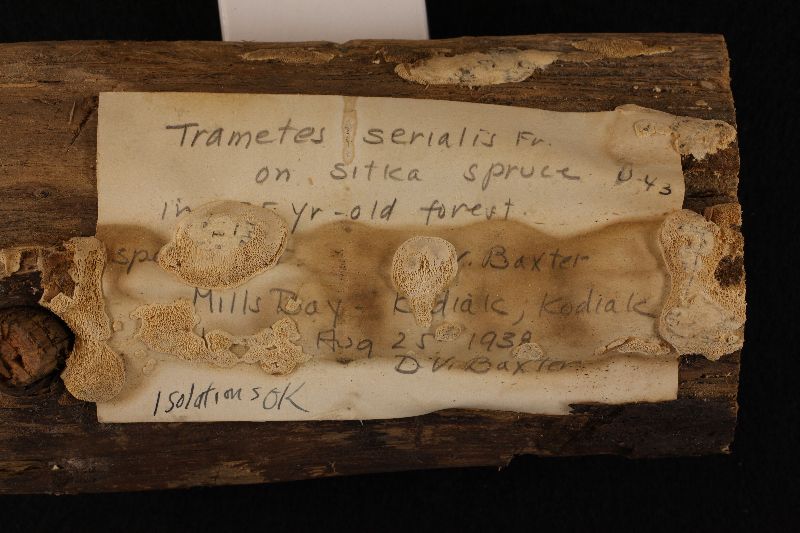 Trametes serialis Fr.
on sitka spruce D43
in yr-old forest
V. Baxter
Mills Bay - Kodiak, Kodiak
Aug 25 1938
D.V. Baxter
Isolations OK